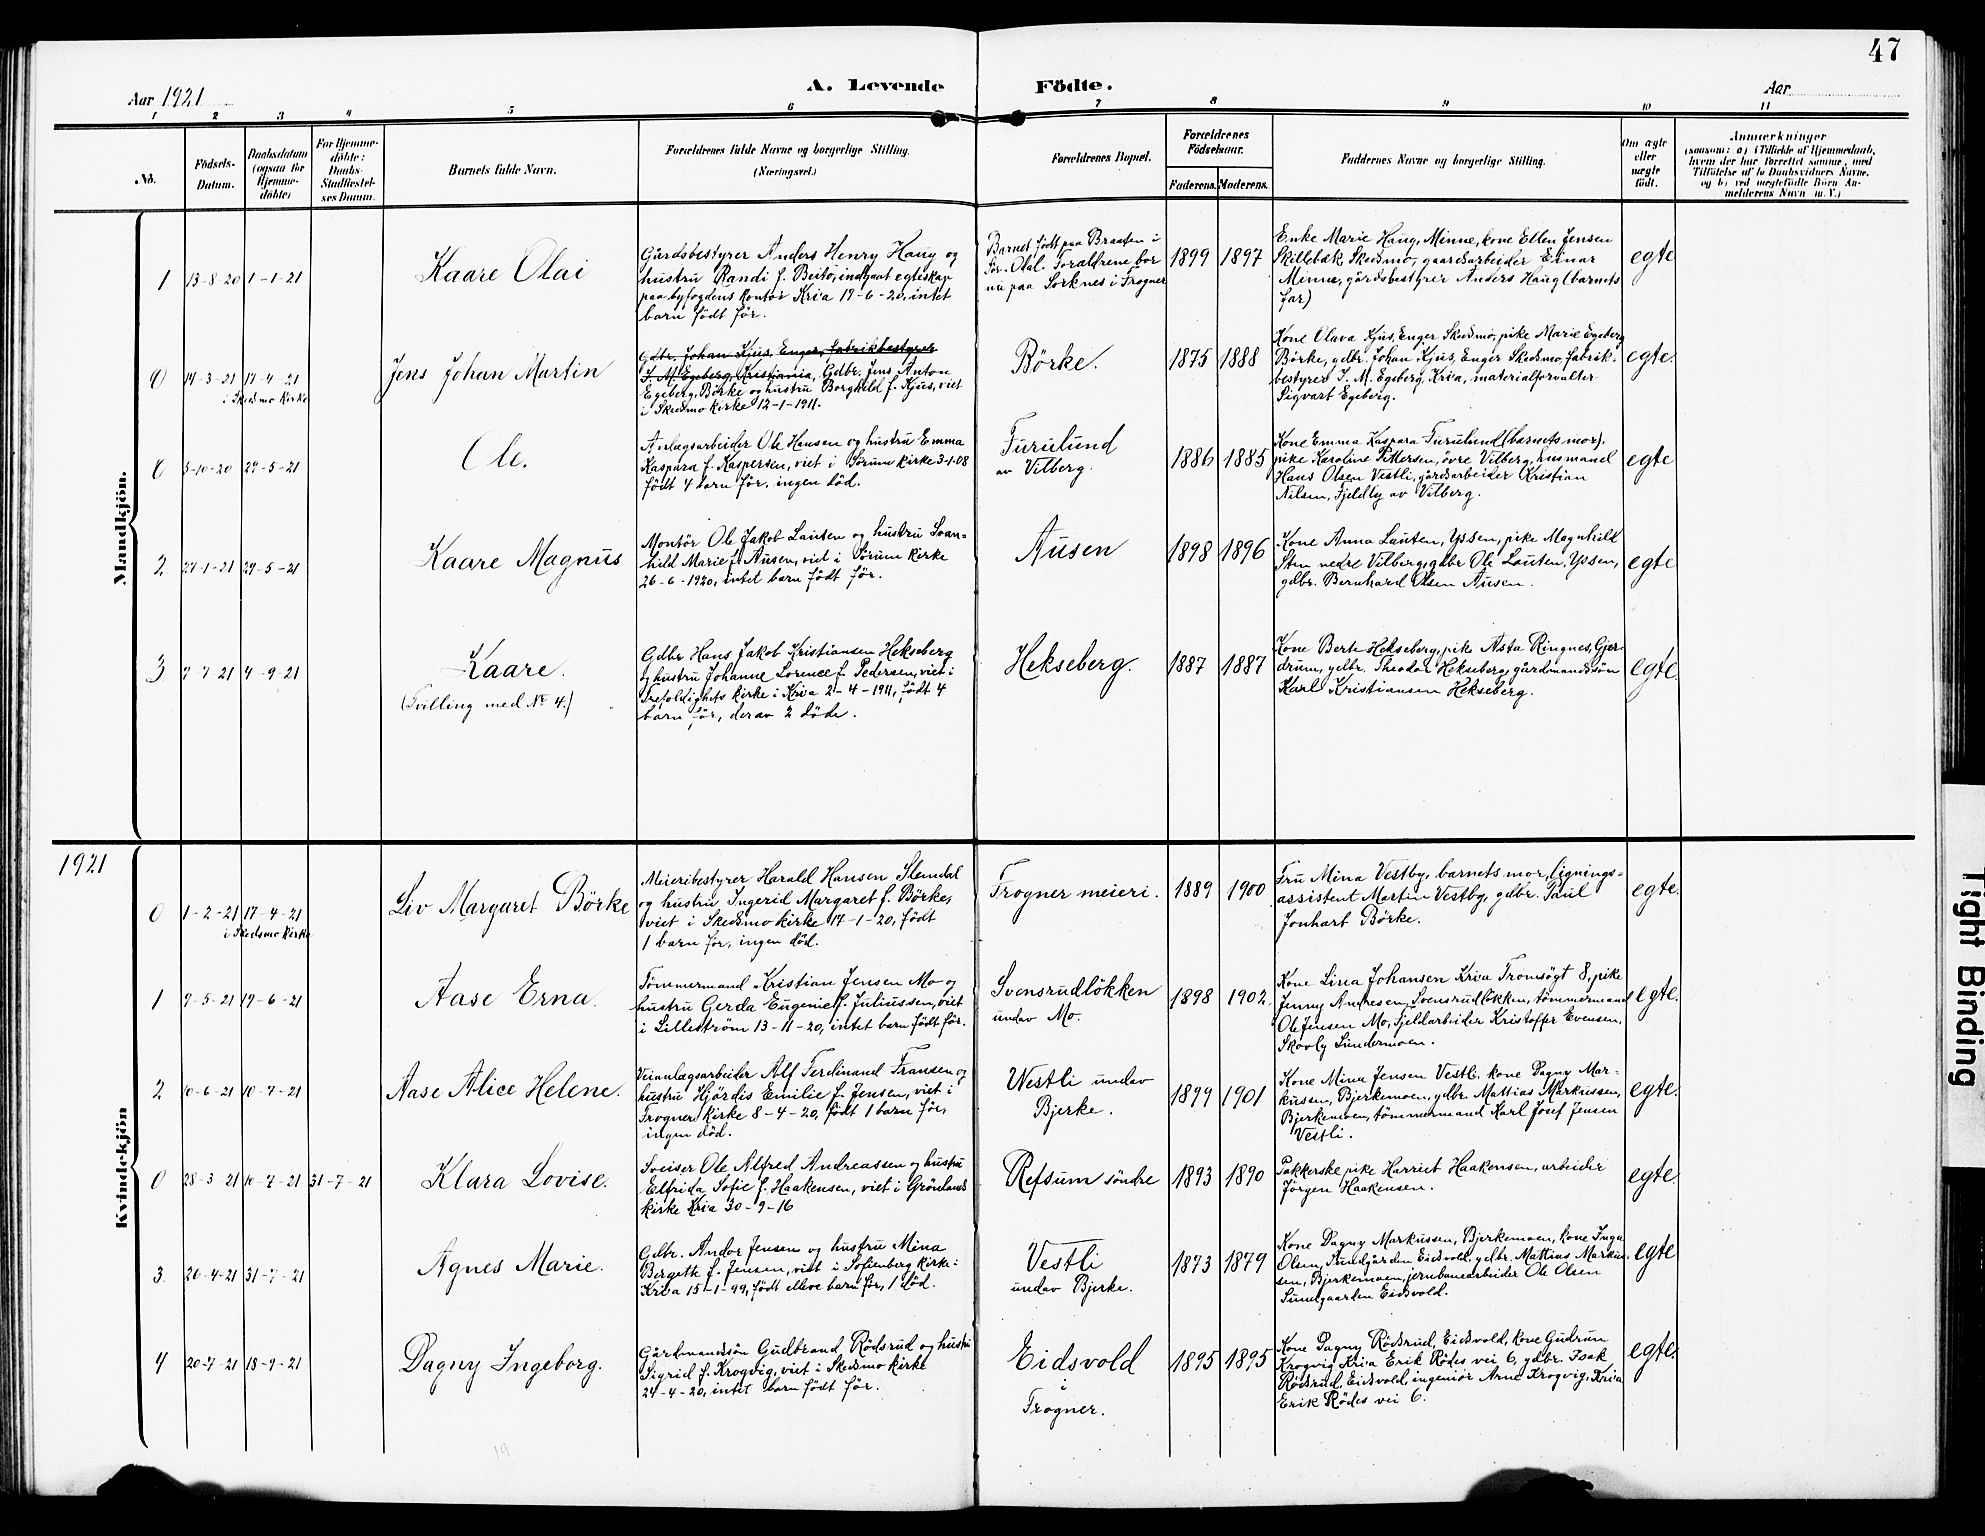 47
Aar 1921
A. Levende Födte.
Aar
1 2 3 4 5 6 7 8 9 10 11
No.
Födsels-
Datum.
Daabsdatum
(ogsaa for
Hjemme-
döbte)
For Hjemme-
döbte:
Daabs-
Stadfæstel-
ses Datum.
Barnets fulde Navn.
Forældrenes fulde Navne og borgerlige Stilling.
(Næringsvei.)
Forældrenes Bopæl.
Forældrenes
Födselsaar.
Faderens. Moderens.
Faddernes Navne og borgerlige Stilling.
Om ægte
eller
uægte
födt.
Anmærkninger
(saasom: a) i Tilfælde af Hjemmedaab,
hvem der har forrettet samme, med
Tilföielse af to Daabsvidners Navne,
og b) ved uægtefödte Börn An-
melderens Navn m. V.)
Mandkjön.
1 13-8-20 1-1-21
Kaare Olai
Gårdsbestyrer Anders Henry Haug og
hustru Randi f. Beito, indgaat egteskap
paa byfogdens kontor Kria 19-6-20, intet
barn födt för.
Barnet födt paa Braaten i
Forældrene bor
nu paa Sorknes i Frogner
1899 1897
Enke Marie Haug, Minne, kone Ellen Jensen
Skillebæk Skedsmo, gaardsarbeider Einar
Minne, gårdsbestyrer Anders Haug (barnets
far)
egte
0 14-3-21 17-4-21
i Skedsmo kirke
Jens Johan Martin
Gdbr. Johan Kjus, Enger, fabrikbestyrer
J. M. Egeberg, Kristiania, Gdbr. Jens Anton
Egeberg, Börke og hustru Borghild f. Kjus, viet
i Skedsmo kirke 12-1-1911.
Börke.
1875 1888
Kone Olava Kjus, Enger Skedsmo, pike Marie Egeberg
Börke, gdbr. Johan Kjus, Enger Skedsmo, fabrik-
bestyrer J. M. Egeberg, Kria, materialforvalter
Sigvart Egeberg.
egte.
0 5-10-20 29-5-21
Ole.
Anlægsarbeider Ole Hansen og hustru Emma
Kaspara f. Kaspersen, viet i Sörum kirke 3-1-08
födt 4 barn för, ingen död.
Furulund
av Vilberg.
1886 1885
Kone Emma Kaspara Furulund (barnets mor),
pike Karoline Pettersen, övre Vilberg, husmand
Hans Olsen Vestli, gårdsarbeider Kristian
Nilsen, Fjeldby av Vilberg.
egte
2 27-1-21 29-5-21
Kaare Magnus
Montör Ole Jakob Lauten og hustru Svan-
hild Marie f. Ausen, viet i Sörum kirke
26-6-1920, intet barn födt för.
Ausen
1898 1896
Kone Anna Lauten, Yssen, pike Magnhild
Sten nedre Vilberg, gdbr Ole Lauten, Yssen,
gdbr. Bernhard Olsen Ausen.
egte
3 7-7-21 4-9-21
Kaare.
(Tvilling med No 4.)
Gdbr Hans Jakob Kristiansen Hekseberg
og hustru Johanne Lorence f. Pedersen, viet i
Trefoldighets kirke i Kria 2-4-1911, födt 4
barn för, derav 2 döde.
Hekseberg.
1887 1887
Kone Berte Hekseberg, pike Asta Ringnes, Gjer-
drum, gdbr. Theodor Hekseberg, gårdmandssön
Karl Kristiansen Hekseberg.
egte.
1921
Kvindekjön
0 1-2-21 17-4-21
i Skedsmo kirke
Liv Margaret Börke
Meieribestyrer Harald Hansen Stemdal
og hustru Ingerid Margaret f. Börke,
viet i Skedsmo kirke 17-1-20, födt
1 barn för, ingen död.
Frogner meieri.
1889 1900
Fru Mina Vestby, barnets mor, lignings-
assistent Martin Vestby, gdbr. Paul
Jonhart Börke.
egte.
1 7-5-21 19-6-21
Aase Erna.
Tömmermand Kristian Jensen Mo og
hustru Gerda Eugenie f. Juliussen, viet
i Lilleström 13-11-20, intet barn födt för.
Svensrudlökken
undav Mo.
1898 1902
Kone Lina Johansen Kria Tromsögt 8, pike
Jenny Andresen, Svensrudlökken, tömmermand
Ole Jensen Mo, Fjeldarbeider Kristoffer Evensen,
Skovly Sundermoen.
egte.
2 10-6-21 10-7-21
Aase Alice Helene.
Veianlægsarbeider Alf Ferdinand Fransen og
hustru Hjördis Emilie f. Jensen, viet i
Frogner kirke 8-4-20, födt 1 barn för,
ingen död.
Westli undav
Bjerke.
1899 1901
Kone Mina Jensen Vestli, kone Dagny Mar-
kussen, Bjerkemoen, gdbr. Mattias Markussen,
Bjerkemoen, tömmermand Karl Josef Jensen
Vestli.
egte.
0 28-3-21 10-7-21 31-7-21
Klara Lovise.
Sveiser Ole Alfred Andreassen og hustru
Elfrida Sofie f. Haakensen, viet i Grönlands
kirke Kria 30-9-16
Refsum söndre
1893 1890
Pakkerske pike Harriet Haakensen, arbeider
Jörgen Haakensen.
egte.
3. 26-4-21 31-7-21
Agnes Marie.
Gdbr. Andor Jensen og hustru Mina
Bergette f. Jensen, viet i Sofienberg kirke i
Kria 15-1-99, födt elleve barn för, 1 död.
Vestli
undav Bjerke.
1873 1879
Kone Dagny Markussen, Bjerkemoen, kone Inga
Olsen, Sundgården Eidsvold, gdbr. Mattias Markus-
sen, Bjerkemoen, jernbanearbeider Ole Olsen
Sundgaarden Eidsvold.
egte
4 20-7-21 18-9-21
Dagny Ingeborg.
Gårdmandssön Gudbrand Rödsrud og hustru
Sigrid f. Krogvig, viet i Skedsmo kirke
24-4-20, intet barn födt för.
Eidsvold
i
Frogner.
1895 1895
Kone Dagny Rödsrud, Eidsvold, kone Gudrun
Krogvig Kria Erik Rödes vei 6, gdbr. Isak
Rödsrud, Eidsvold, ingeniör Arne Krogvig, Kria
Erik Rödes vei 6.
egte.
19
Tight Binding